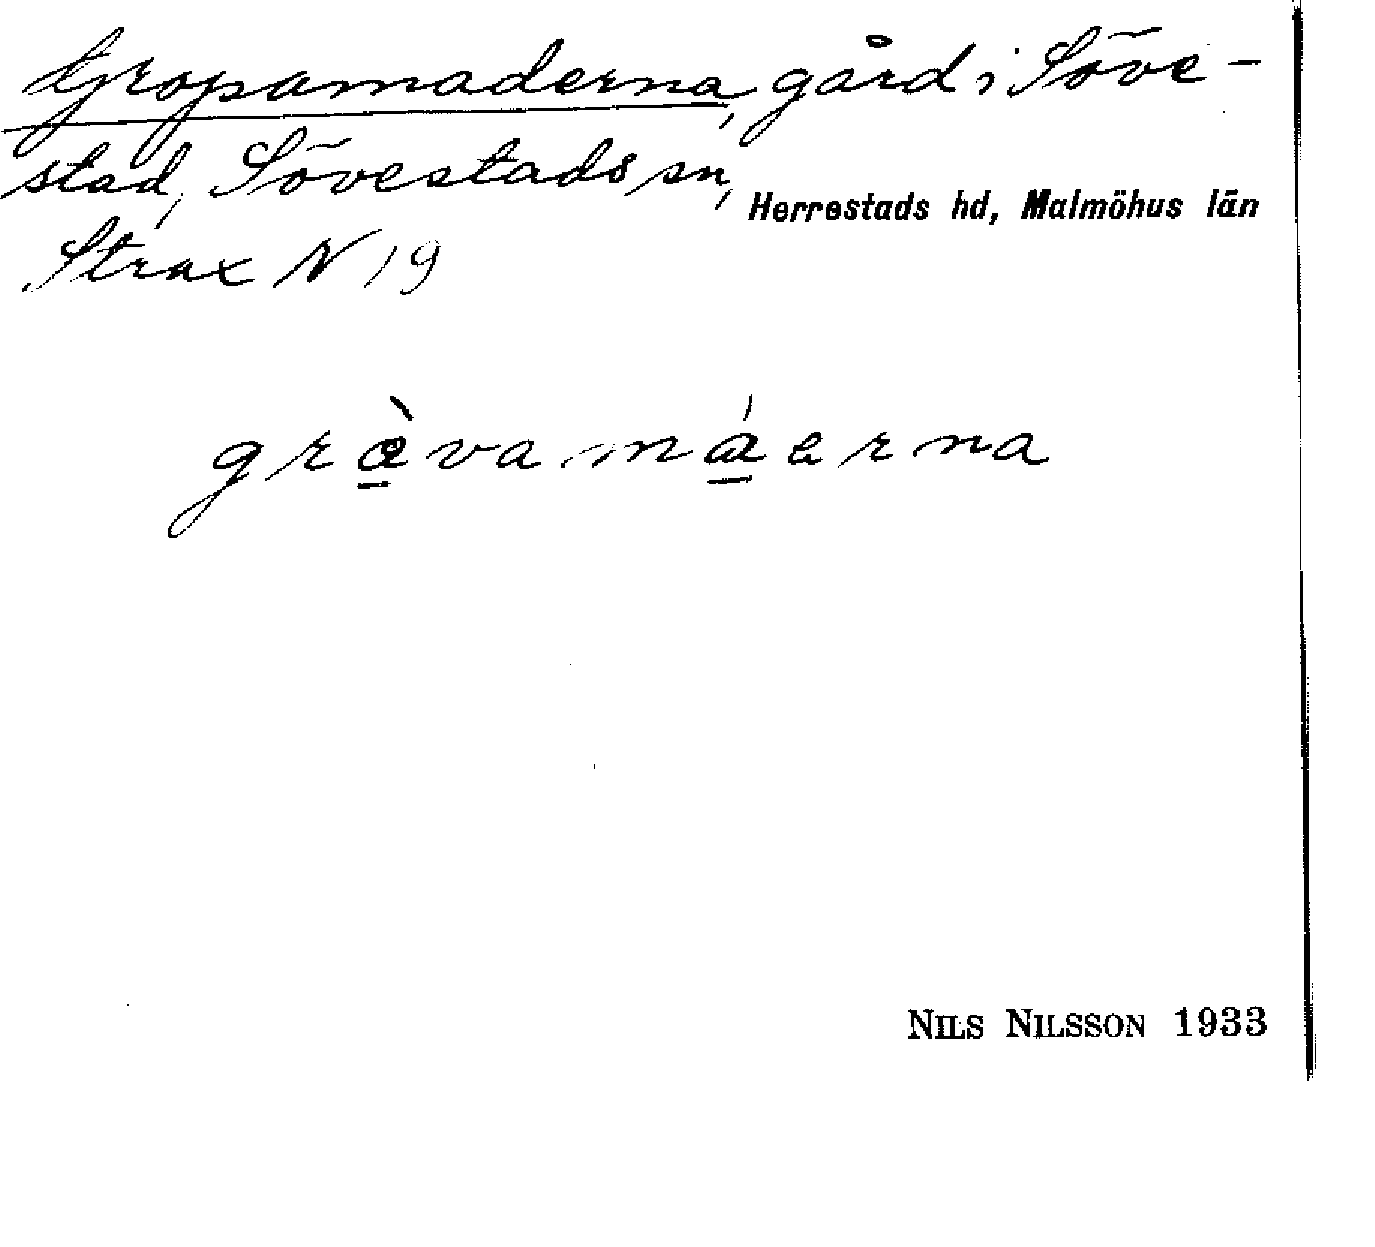 Gropamaderna, gård i Söve-
stad, Sövestads sn, Herrestads hd, Malmöhus län
Strax N 19
græ̱̀vamá̱erna
NILS NILSSON 1933